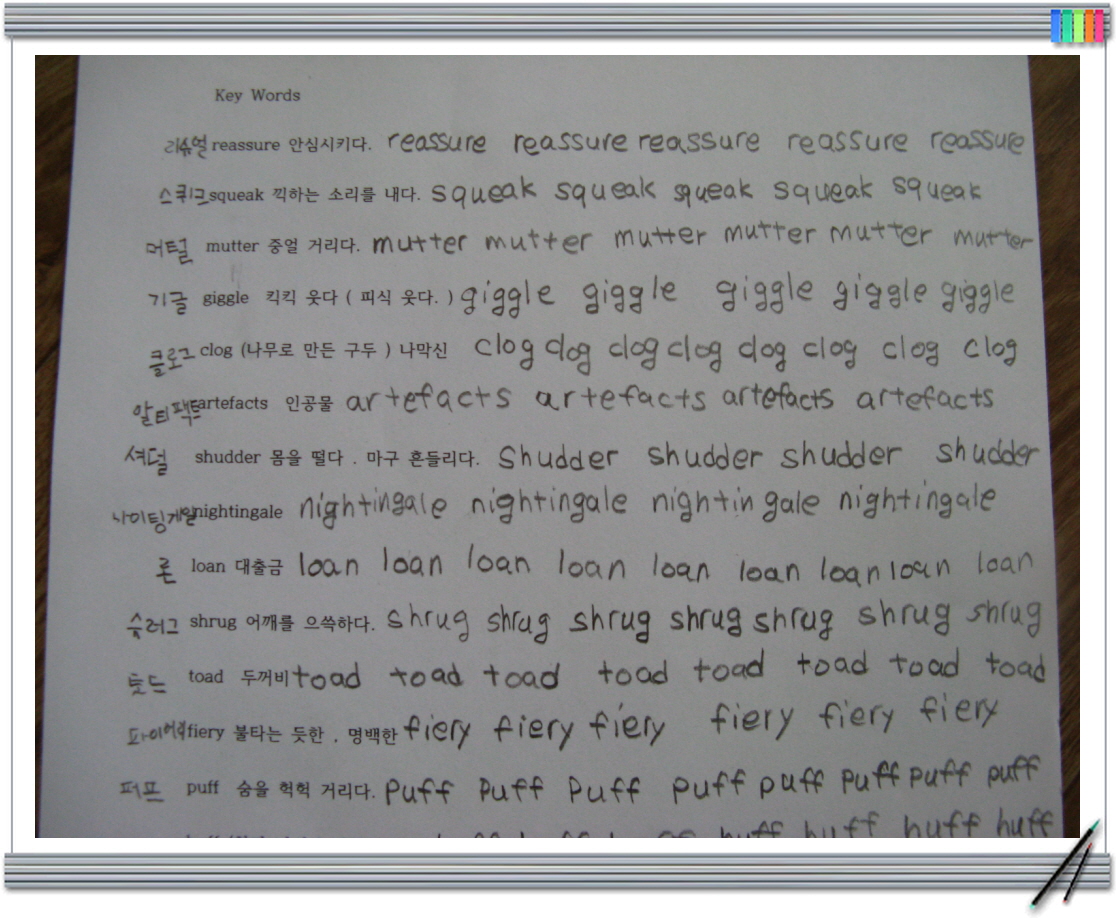 Key Words
리슈얼 reassure 안심시키다. reassure reassure reassure reassure reassure
스퀴크 squeak 끽하는 소리를 내다. squeak squeak squeak squeak squeak
머털 mutter 중얼 거리다. mutter mutter mutter mutter mutter mutter
기글 giggle 킥킥 웃다 ( 피식 웃다. ) giggle giggle giggle giggle giggle
클로그 clog (나무로 만든 구두 ) 나막신 clog clog clog clog clog clog clog clog
알티팩트 artefacts 인공물 artefacts artefacts artefacts artefacts
셔덜 shudder 몸을 떨다 . 마구 흔들리다. shudder shudder shudder shudder
나이팅게일 nightingale nightingale nightingale nightingale nightingale
론 loan 대출금 loan loan loan loan loan loan loan loan loan
슈러그 shrug 어깨를 으쓱하다. shrug shrug shrug shrug shrug shrug shrug
토드 toad 두꺼비 toad toad toad toad toad toad toad toad
fiery 불타는 듯한 . 명백한 fiery fiery fiery fiery fiery fiery
퍼프 puff 숨을 헉헉 거리다. puff puff puff puff puff puff puff puff
huff huff huff huff